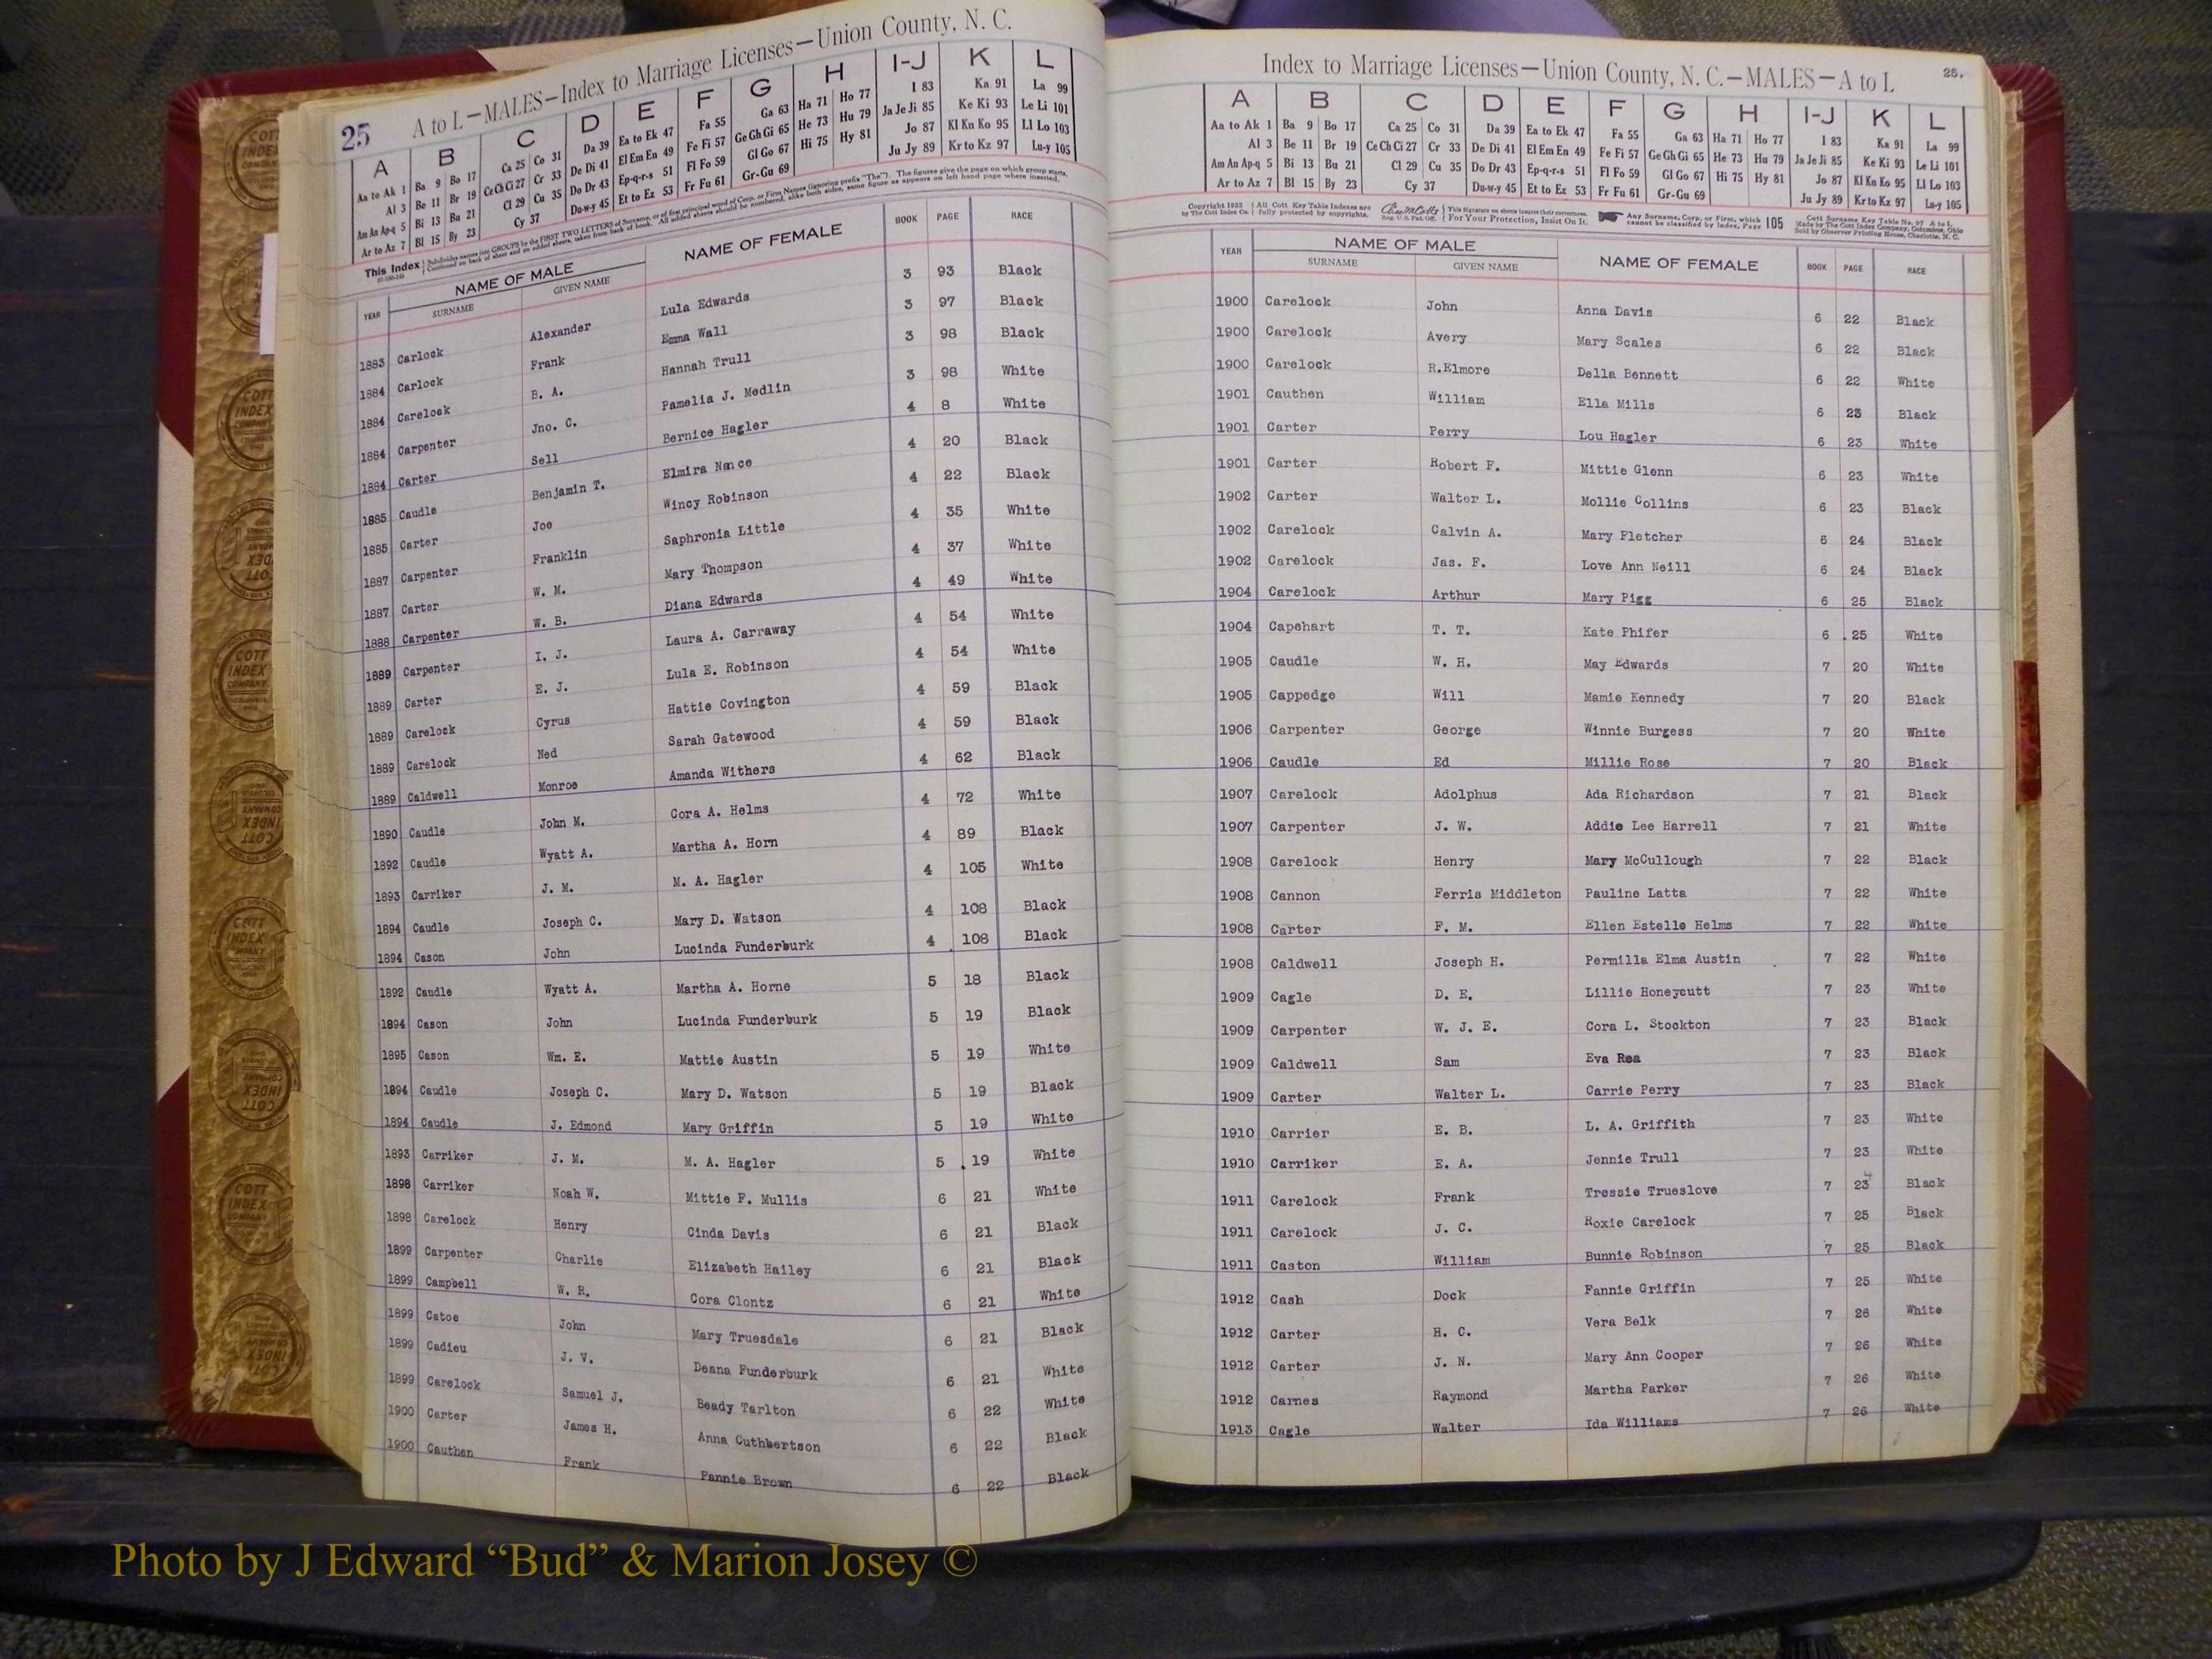 25
A to L—MALES—Index to Marriage Licenses—Union County, N. C.
A B C D E F G H I-J K L
Aa to Ak 1 Ba 9 Bo 17 Ca 25 Co 31 Da 39 Ea to Ek 47 Fa 55 Ga 63 Ha 71 Ho 77 I 83 Ka 91 La 99
Al 3 Be 11 Br 19 Ce Ch Ci 27 Cr 33 De Di 41 El Em En 49 Fe Fi 57 Ge Gh Gi 65 He 73 Hu 79 Ja Je Ji 85 Ke Ki 93 Le Li 101
Am An Ap-q 5 Bi 13 Bu 21 Cl 29 Cu 35 Do Dr 43 Ep-q-r-s 51 Fl Fo 59 Gl Go 67 Hi 75 Hy 81 Jo 87 Kl Kn Ko 95 Ll Lo 103
Ar to Az 7 Bl 15 By 23 Cy 37 Du-w-y 45 Et to Ez 53 Fr Fu 61 Gr-Gu 69 Ju Jy 89 Kr to Kz 97 Lu-y 105
This Index Subdivides names into GROUPS by the FIRST TWO LETTERS of Surname, or of first principal word of Corp. or Firm Names (ignoring prefix "The"). The figures give the page on which group starts.
Continued on back of sheet and on added sheets, taken from back of book. All added sheets should be numbered, alike both sides, same figure as appears on left hand page where inserted.
YEAR NAME OF MALE NAME OF FEMALE BOOK PAGE RACE
SURNAME GIVEN NAME
1883 Carlock Alexander Lula Edwards 3 93 Black
1884 Carlock Frank Emma Wall 3 97 Black
1884 Carelock B. A. Hannah Trull 3 98 Black
1884 Carpenter Jno. C. Pamelia J. Medlin 3 98 White
1884 Carter Sell Bernice Hagler 4 8 White
1885 Caudle Benjamin T. Elmira Nance 4 20 Black
1885 Carter Joe Wincy Robinson 4 22 Black
1887 Carpenter Franklin Saphronia Little 4 35 White
1887 Carter W. M. Mary Thompson 4 37 White
1888 Carpenter W. B. Diana Edwards 4 49 White
1889 Carpenter I. J. Laura A. Carraway 4 54 White
1889 Carter E. J. Lula E. Robinson 4 54 White
1889 Carelock Cyrus Hattie Covington 4 59 Black
1889 Carelock Ned Sarah Gatewood 4 59 Black
1889 Caldwell Monroe Amanda Withers 4 62 Black
1890 Caudle John M. Cora A. Helms 4 72 White
1892 Caudle Wyatt A. Martha A. Horn 4 89 Black
1893 Carriker J. M. M. A. Hagler 4 105 White
1894 Caudle Joseph C. Mary D. Watson 4 108 Black
1894 Cason John Lucinda Funderburk 4 108 Black
1892 Caudle Wyatt A. Martha A. Horne 5 18 Black
1894 Cason John Lucinda Funderburk 5 19 Black
1895 Cason Wm. E. Mattie Austin 5 19 White
1894 Caudle Joseph C. Mary D. Watson 5 19 Black
1894 Caudle J. Edmond Mary Griffin 5 19 White
1893 Carriker J. M. M. A. Hagler 5 19 White
1898 Carriker Noah W. Mittie F. Mullis 6 21 White
1898 Carelock Henry Cinda Davis 6 21 Black
1899 Carpenter Charlie Elizabeth Hailey 6 21 Black
1899 Campbell W. R. Cora Clontz 6 21 White
1899 Catoe John Mary Truesdale 6 21 Black
1899 Cadieu J. V. Deana Funderburk 6 21 White
1899 Carelock Samuel J. Beady Tarlton 6 22 White
1900 Carter James H. Anna Cuthbertson 6 22 Black
1900 Cauthen Frank Fannie Brown 6 22 Black
Index to Marriage Licenses—Union County, N. C.—MALES—A to L
25.
A B C D E F G H I-J K L
Aa to Ak 1 Ba 9 Bo 17 Ca 25 Co 31 Da 39 Ea to Ek 47 Fa 55 Ga 63 Ha 71 Ho 77 I 83 Ka 91 La 99
Al 3 Be 11 Br 19 Ce Ch Ci 27 Cr 33 De Di 41 El Em En 49 Fe Fi 57 Ge Gh Gi 65 He 73 Hu 79 Ja Je Ji 85 Ke Ki 93 Le Li 101
Am An Ap-q 5 Bi 13 Bu 21 Cl 29 Cu 35 Do Dr 43 Ep-q-r-s 51 Fl Fo 59 Gl Go 67 Hi 75 Hy 81 Jo 87 Kl Kn Ko 95 Ll Lo 103
Ar to Az 7 Bl 15 By 23 Cy 37 Du-w-y 45 Et to Ez 53 Fr Fu 61 Gr-Gu 69 Ju Jy 89 Kr to Kz 97 Lu-y 105
Copyright 1922 All Cott Key Table Indexes are This Signature on sheets insures their correctness. Any Surname, Corp. or Firm, which 105 Cott Surname Key Table No. 97 A to L
by The Cott Index Co. fully protected by copyrights. Reg. U.S. Pat. Off. For Your Protection, Insist On It. cannot be classified by Index, Page Made by The Cott Index Company, Columbus, Ohio
Sold by Observer Printing House, Charlotte, N. C.
YEAR NAME OF MALE NAME OF FEMALE BOOK PAGE RACE
SURNAME GIVEN NAME
1900 Carelock John Anna Davis 6 22 Black
1900 Carelock Avery Mary Scales 6 22 Black
1900 Carelock R.Elmore Della Bennett 6 22 White
1901 Cauthen William Ella Mills 6 23 Black
1901 Carter Perry Lou Hagler 6 23 White
1901 Carter Robert F. Mittie Glenn 6 23 White
1902 Carter Walter L. Mollie Collins 6 23 Black
1902 Carelock Calvin A. Mary Fletcher 6 24 Black
1902 Carelock Jas. F. Love Ann Neill 6 24 Black
1904 Carelock Arthur Mary Pigg 6 25 Black
1904 Capehart T. T. Kate Phifer 6 25 White
1905 Caudle W. H. May Edwards 7 20 White
1905 Cappedge Will Mamie Kennedy 7 20 Black
1906 Carpenter George Winnie Burgess 7 20 White
1906 Caudle Ed Millie Rose 7 20 Black
1907 Carelock Adolphus Ada Richardson 7 21 Black
1907 Carpenter J. W. Addie Lee Harrell 7 21 White
1908 Carelock Henry Mary McCullough 7 22 Black
1908 Cannon Ferris Middleton Pauline Latta 7 22 White
1908 Carter F. M. Ellen Estelle Helms 7 22 White
1908 Caldwell Joseph H. Permilla Elma Austin 7 22 White
1909 Cagle D. E. Lillie Honeycutt 7 23 White
1909 Carpenter W. J. E. Cora L. Stockton 7 23 Black
1909 Caldwell Sam Eva Rea 7 23 Black
1909 Carter Walter L. Carrie Perry 7 23 Black
1910 Carrier E. B. L. A. Griffith 7 23 White
1910 Carriker E. A. Jennie Trull 7 23 White
1911 Carelock Frank Tressie Trueslove 7 23 4 Black
1911 Carelock J. C. Roxie Carelock 7 25 Black
1911 Caston William Bunnie Robinson 7 25 Black
1912 Cash Dock Fannie Griffin 7 25 White
1912 Carter H. C. Vera Belk 7 26 White
1912 Carter J. N. Mary Ann Cooper 7 26 White
1912 Carnes Raymond Martha Parker 7 26 White
1913 Cagle Walter Ida Williams 7 26 White
Photo by J Edward “Bud” & Marion Josey ©